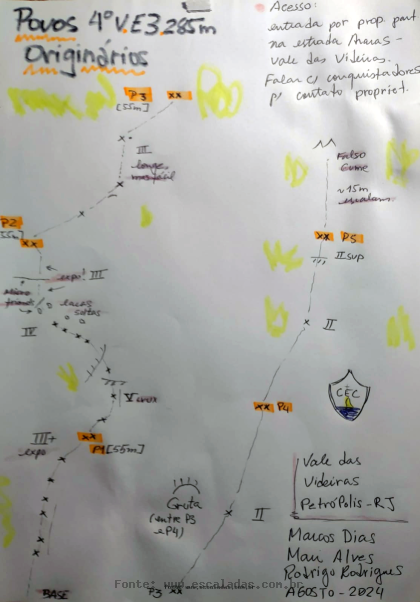 Povos 4º V. E3, 285m
Originários
Acesso:
entrada por prop. part
na estrada Araras -
Vale das Videiras.
Falar c/ conquistadores
p/ contato propriet.
P3 xx
[55m]
III
P2
55m]
xx
expo!
III
lacas
soltas
IV
V
III+
expo
xx
P1 [55m]
BASE
Falso
Cume
~15m
xx P5
II sup
II
xx P4
CEC
Gruta
(entre P3
e P4)
II
P3 xx
Vale das
Videiras
Petrópolis - RJ
Marcos Dias
Rodrigo Rodrigues
AGOSTO - 2024
Fonte: www.escaladas.com.br